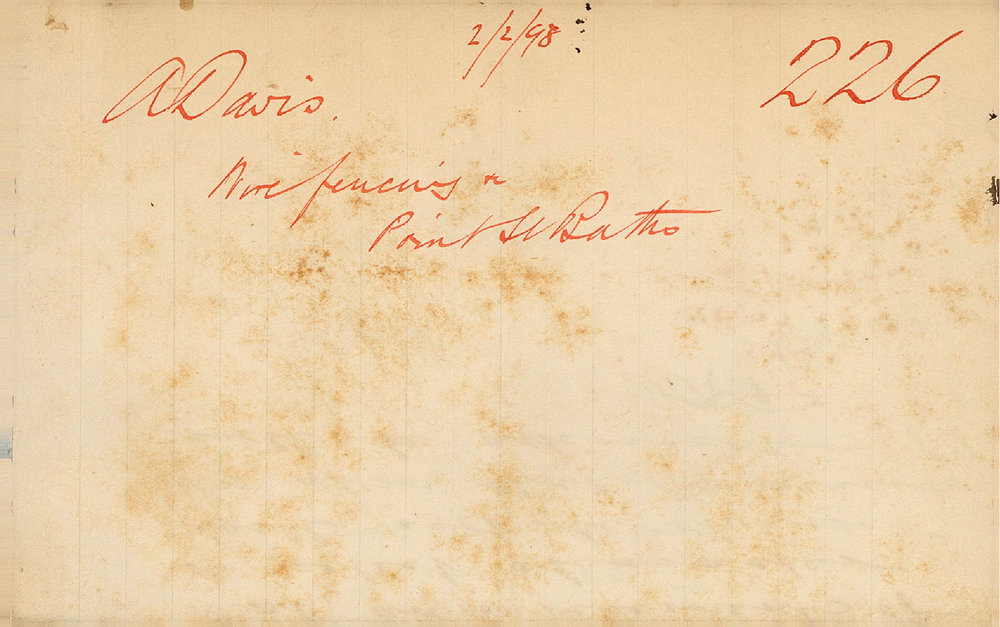 2/2/98
226
A Davis.
Wire fencing &
Point St Baths